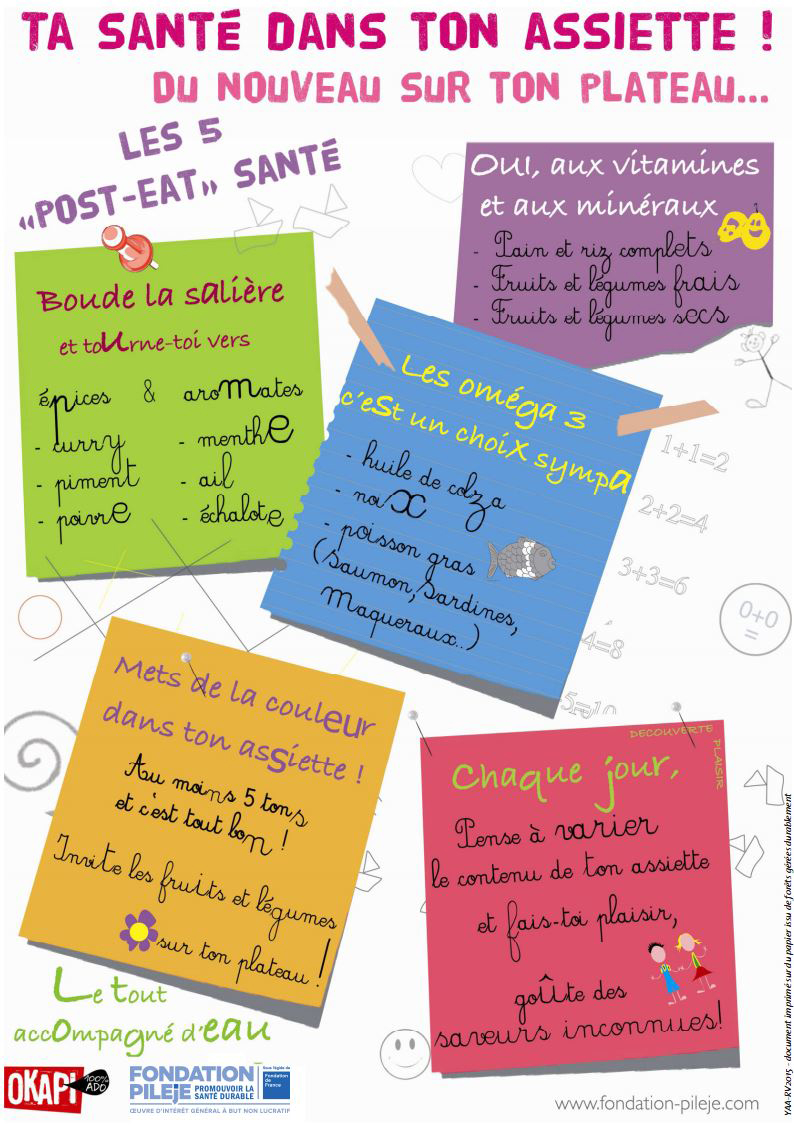 TA SANTÉ DANS TON ASSIETTE !
DU NOUVEAU SUR TON PLATEAU...
LES 5
«POST-EAT» SANTÉ
OUI, aux vitamines
et aux minéraux
- Pain et riz complets
- Fruits et légumes frais
- Fruits et légumes secs
Boude la salière
et toUrne-toi vers
épices & aromates
- curry
- piment
- poivre
- menthe
- ail
- échalote
Les oméga 3
c'eSt un choiX sympa
- huile de colza
- noix
- poisson gras
(Saumon, Sardines,
Maqueraux..)
1+1=2
2+2=4
3+3=6
4=8
5=10
0+0
=
Mets de la couleur
dans ton assiette !
Au moins 5 tons
et c'est tout bon !
Invite les fruits et légumes
sur ton plateau !
DECOUVERTE
PLAISIR
Chaque jour,
Pense à varier
le contenu de ton assiette
et fais-toi plaisir,
goûte des
saveurs inconnues!
Le tout
accOmpagné d'eau
OKAPI
100%
ADO
FONDATION
PILEJE
PROMOUVOIR LA
SANTÉ DURABLE
ŒUVRE D'INTÉRÊT GÉNÉRAL À BUT NON LUCRATIF
Sous l'égide de
Fondation
de
France
www.fondation-pileje.com
YAA-RV2015 - document imprimé sur du papier issu de forêts gérées durablement